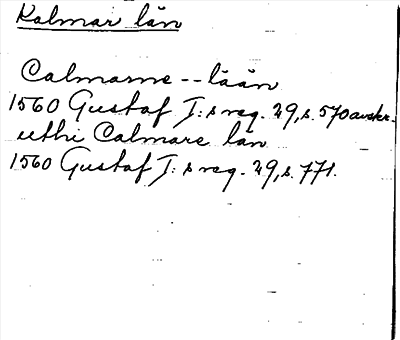 Kalmar län
Calmarne -- lään
1560 Gustaf I: s reg. 29, s. 570 avskr.
uthi Calmare län
1560 Gustaf I: s reg. 29, s. 771.